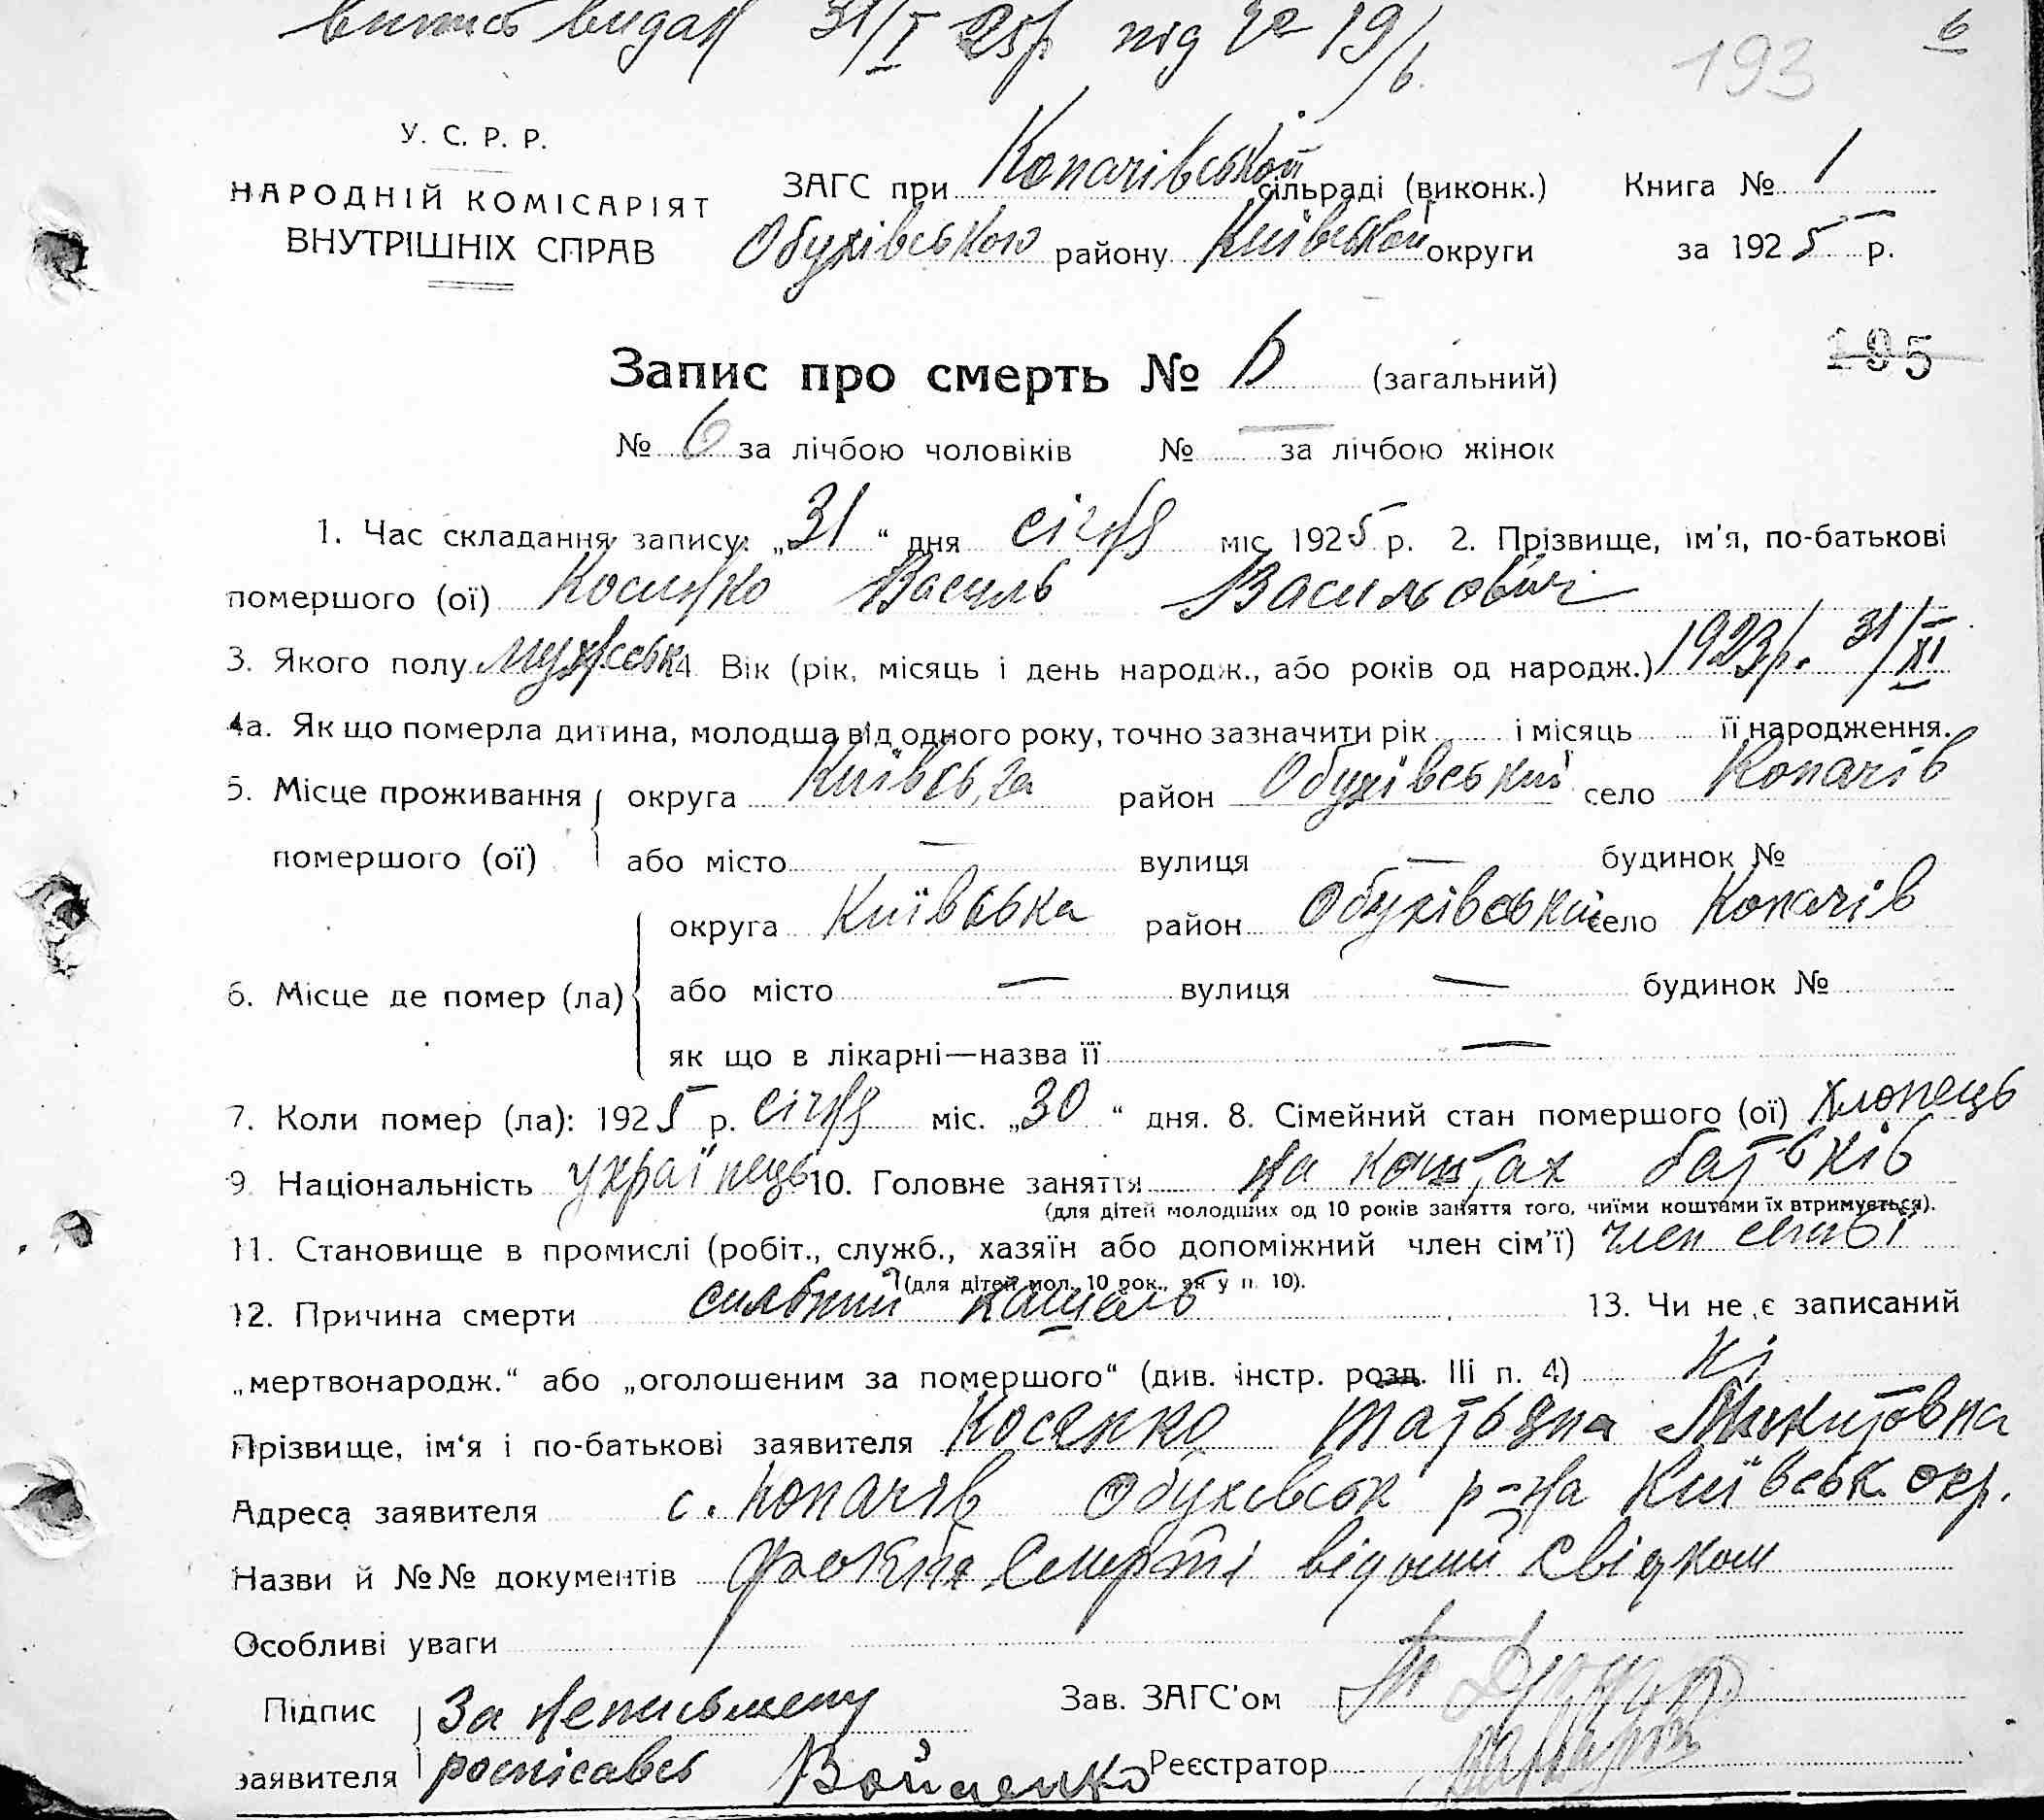 випис видан 31/I 25р під № 19/6. 6
193
У. С. Р. Р.
НАРОДНІЙ КОМІСАРІЯТ
ВНУТРІШНІХ СПРАВ
ЗАГС при Копачівської сільраді (виконк.) Книга № 1
Обухівською району Київської округи за 1925 р.
195
Запис про смерть № 6 (загальний)
№ 6 за лічбою чоловіків № — за лічбою жінок
1. Час складання запису: „31“ дня січня міс. 1925 р. 2. Прізвище, ім'я, по-батькові
помершого (ої) Косенко Василь Васильович
3. Якого полу мужеськ 4. Вік (рік, місяць і день народж., або років од народж.) 1923р. 31/XI
4а. Як що померла дитина, молодша від одного року, точно зазначити рік і місяць її народження.
5. Місце проживання помершого (ої) округа Київська район Обухівський село Копачів
або місто — вулиця — будинок №
6. Місце де помер (ла) округа Київська район Обухівський село Копачів
або місто — вулиця — будинок №
як що в лікарні—назва її —
7. Коли помер (ла): 1925 р. січня міс. „30“ дня. 8. Сімейний стан помершого (ої) хлопець
9. Національність українець 10. Головне заняття на коштах батьків
(для дітей молодших од 10 років заняття того, чиїми коштами їх втримується).
11. Становище в промислі (робіт., служб., хазяїн або допоміжний член сім'ї) член сімьї
(для дітей мол. 10 рок., як у п. 10).
12. Причина смерти сильний кашель 13. Чи не є записаний
„мертвонародж.“ або „оголошеним за помершого“ (див. інстр. розд. III п. 4) ні
Прізвище, ім'я і по-батькові заявителя Косенко Татьяна Микитовна
Адреса заявителя с. Копачів Обухівськ р-на Київськ. окр.
Назви й №№ документів факт смерті відомий свідком
Особливі уваги
Підпис заявителя За неписьмену
росписавсь Войценко
Зав. ЗАГС'ом
Реєстратор